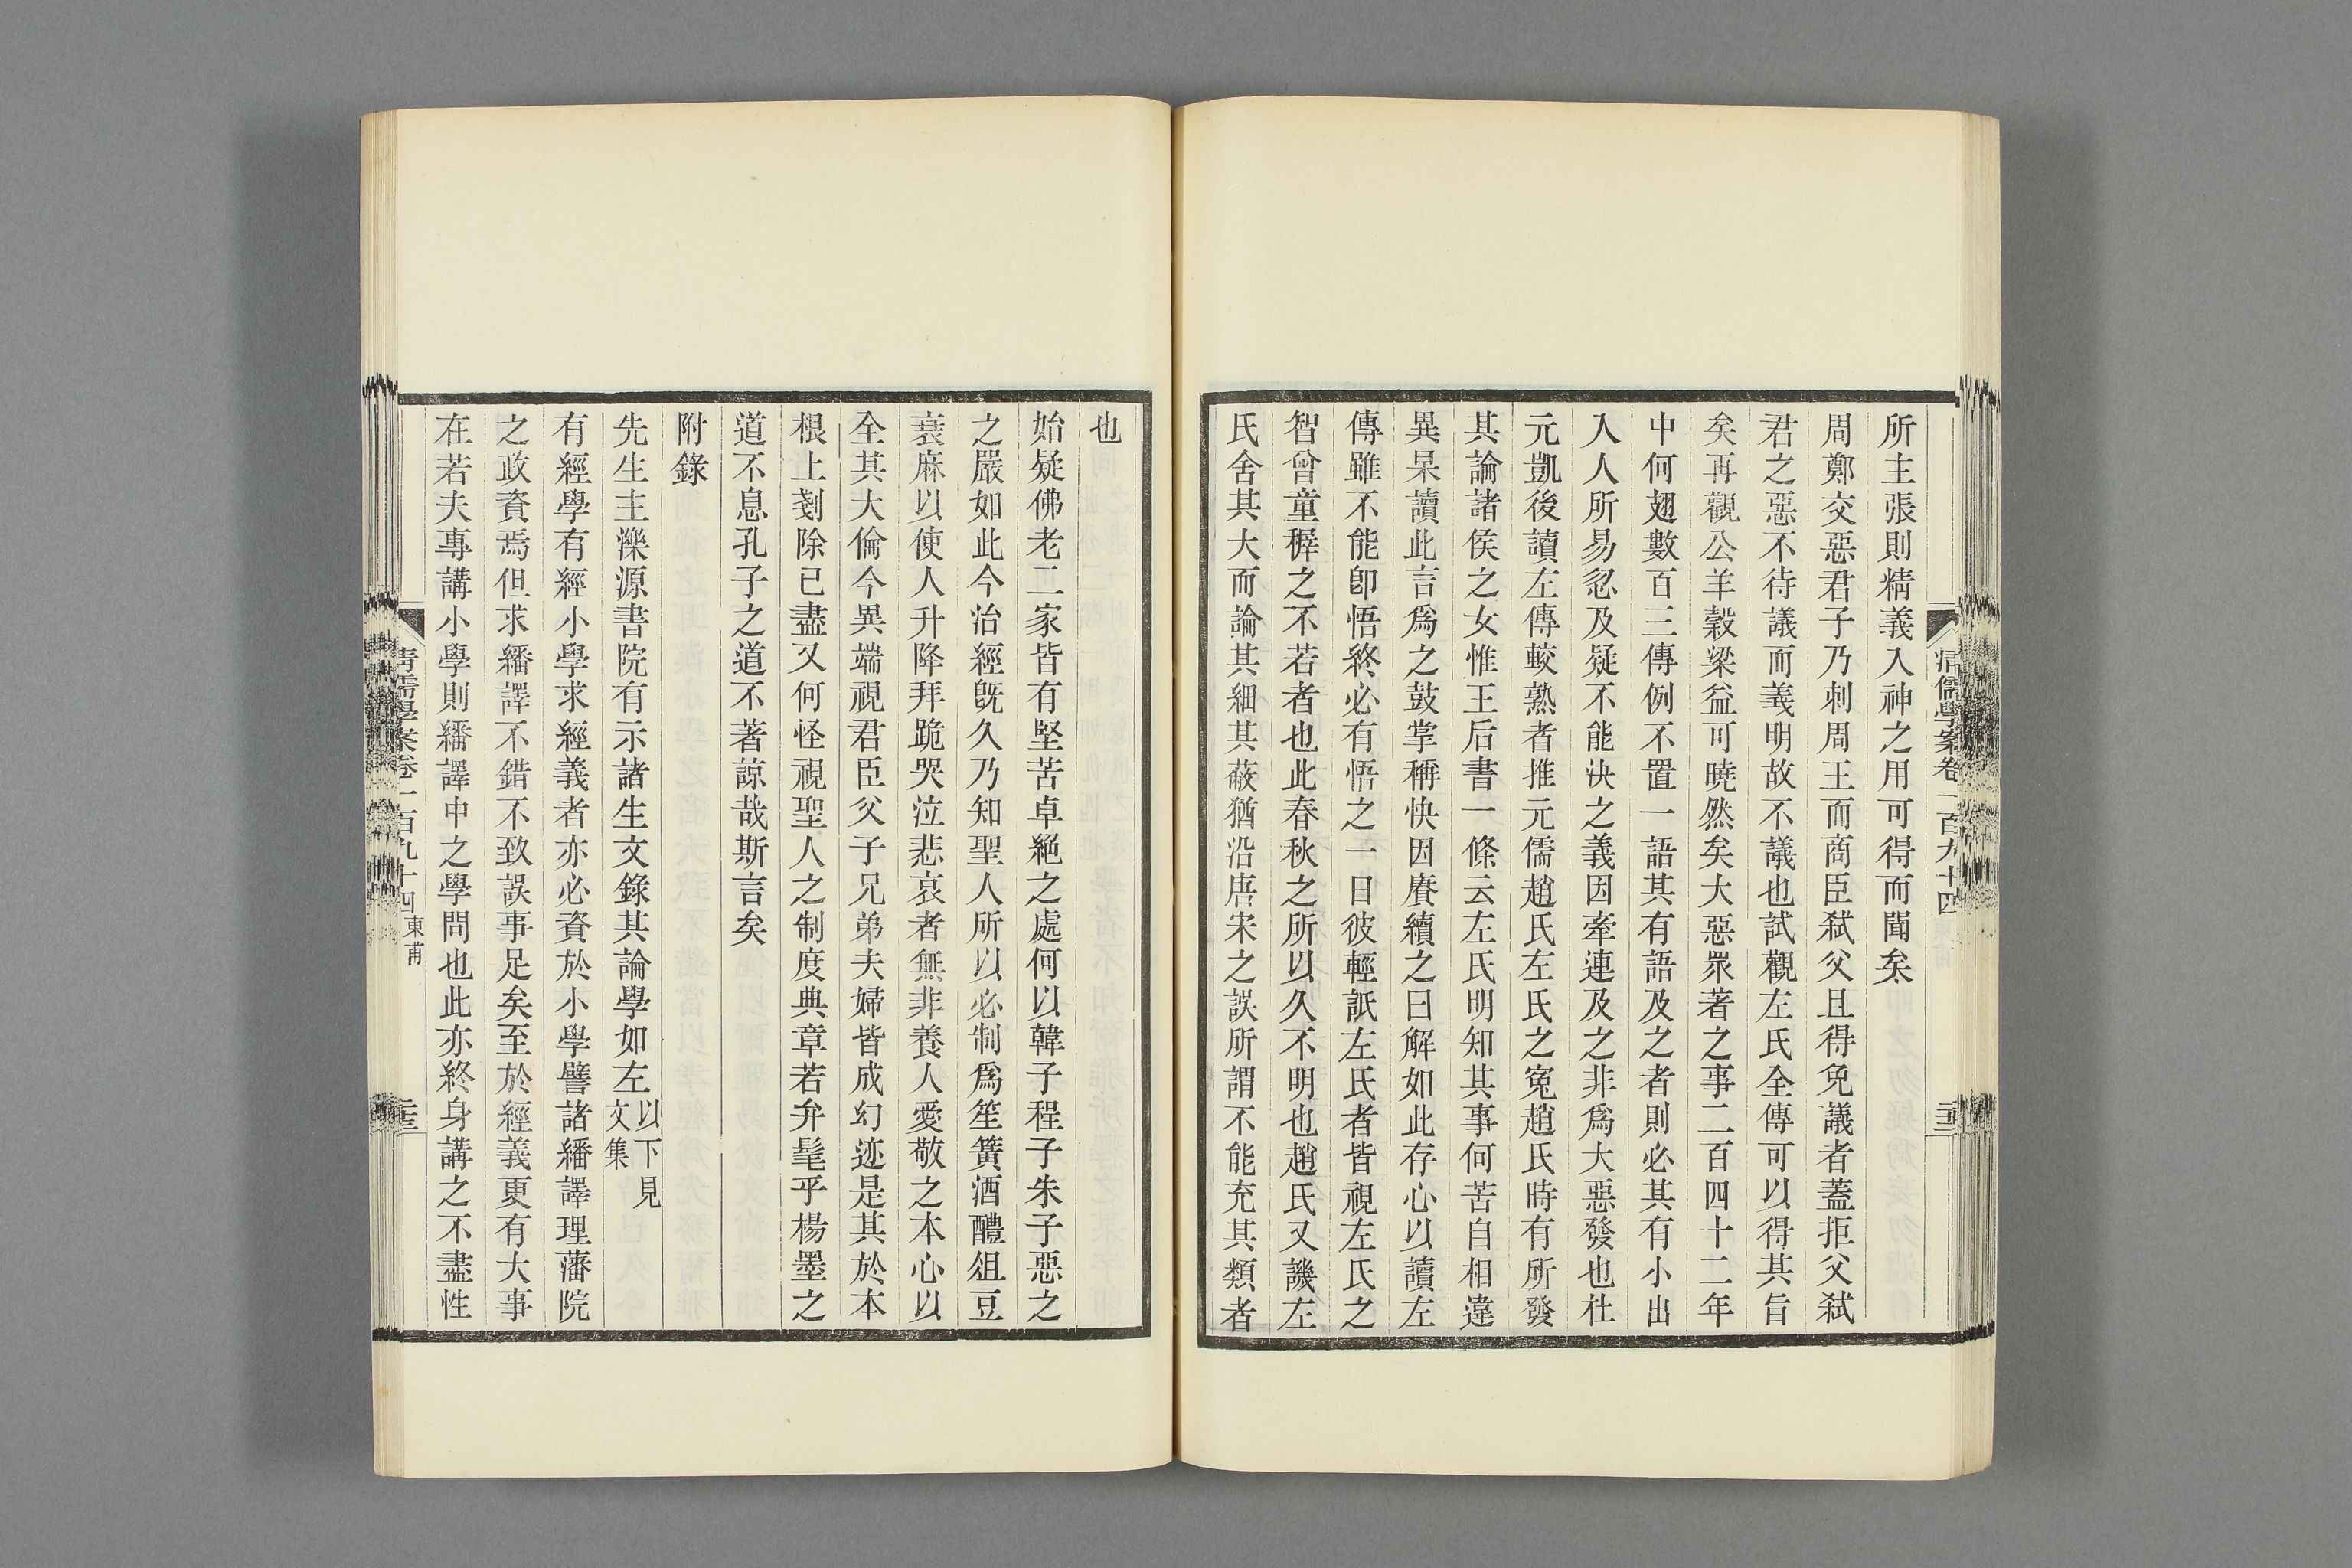 清儒學案卷一百九十四
三十二
所主張則精義入神之用可得而聞矣
周鄭交惡君子乃刺周王而商臣弑父且得免議者蓋拒父弑
君之惡不待議而義明故不議也試觀左氏全傳可以得其旨
矣再觀公羊穀梁益可曉然矣大惡眾著之事二百四十二年
中何翅數百三傳例不置一語其有語及之者則必其有小出
入人所易忽及疑不能決之義因牽連及之非爲大惡發也杜
元凱後讀左傳較熟者推元儒趙氏左氏之寃趙氏時有所發
其論諸侯之女惟王后書一條云左氏明知其事何苦自相違
異杲讀此言爲之鼓掌稱快因賡續之曰解如此存心以讀左
傳雖不能卽悟終必有悟之一日彼輕詆左氏者皆視左氏之
智曾童穉之不若者也此春秋之所以久不明也趙氏又譏左
氏舍其大而論其細其蔽猶沿唐宋之誤所謂不能充其類者
也
始疑佛老二家皆有堅苦卓絕之處何以韓子程子朱子惡之
之嚴如此今治經旣久乃知聖人所以必制爲笙簧酒醴俎豆
衰麻以使人升降拜跪哭泣悲哀者無非養人愛敬之本心以
全其大倫今異端視君臣父子兄弟夫婦皆成幻迹是其於本
根上剗除已盡又何怪視聖人之制度典章若弁髦乎楊墨之
道不息孔子之道不著諒哉斯言矣
附錄
先生主濼源書院有示諸生文錄其論學如左以下見文集
有經學有經小學求經義者亦必資於小學譬諸繙譯理藩院
之政資焉但求繙譯不錯不致誤事足矣至於經義更有大事
在若夫專講小學則繙譯中之學問也此亦終身講之不盡性
清儒學案卷一百九十四 東甫